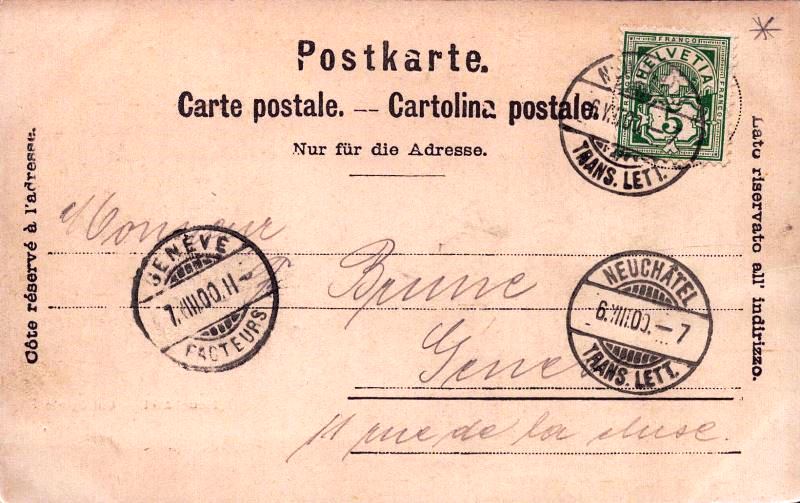 Postkarte.
Carte postale. — Cartolina postale.
Nur für die Adresse.
Côte réservé à l'adresse.
Lato riservato all' indirizzo.
FRANCO
HELVETIA
5
TRANS. LETT.
Monsieur
Brune
Genève
11 rue de la cluse.
GENÈVE
7.VIII.00.11
FACTEURS
NEUCHÂTEL
6.VIII.00.–7
TRANS. LETT.